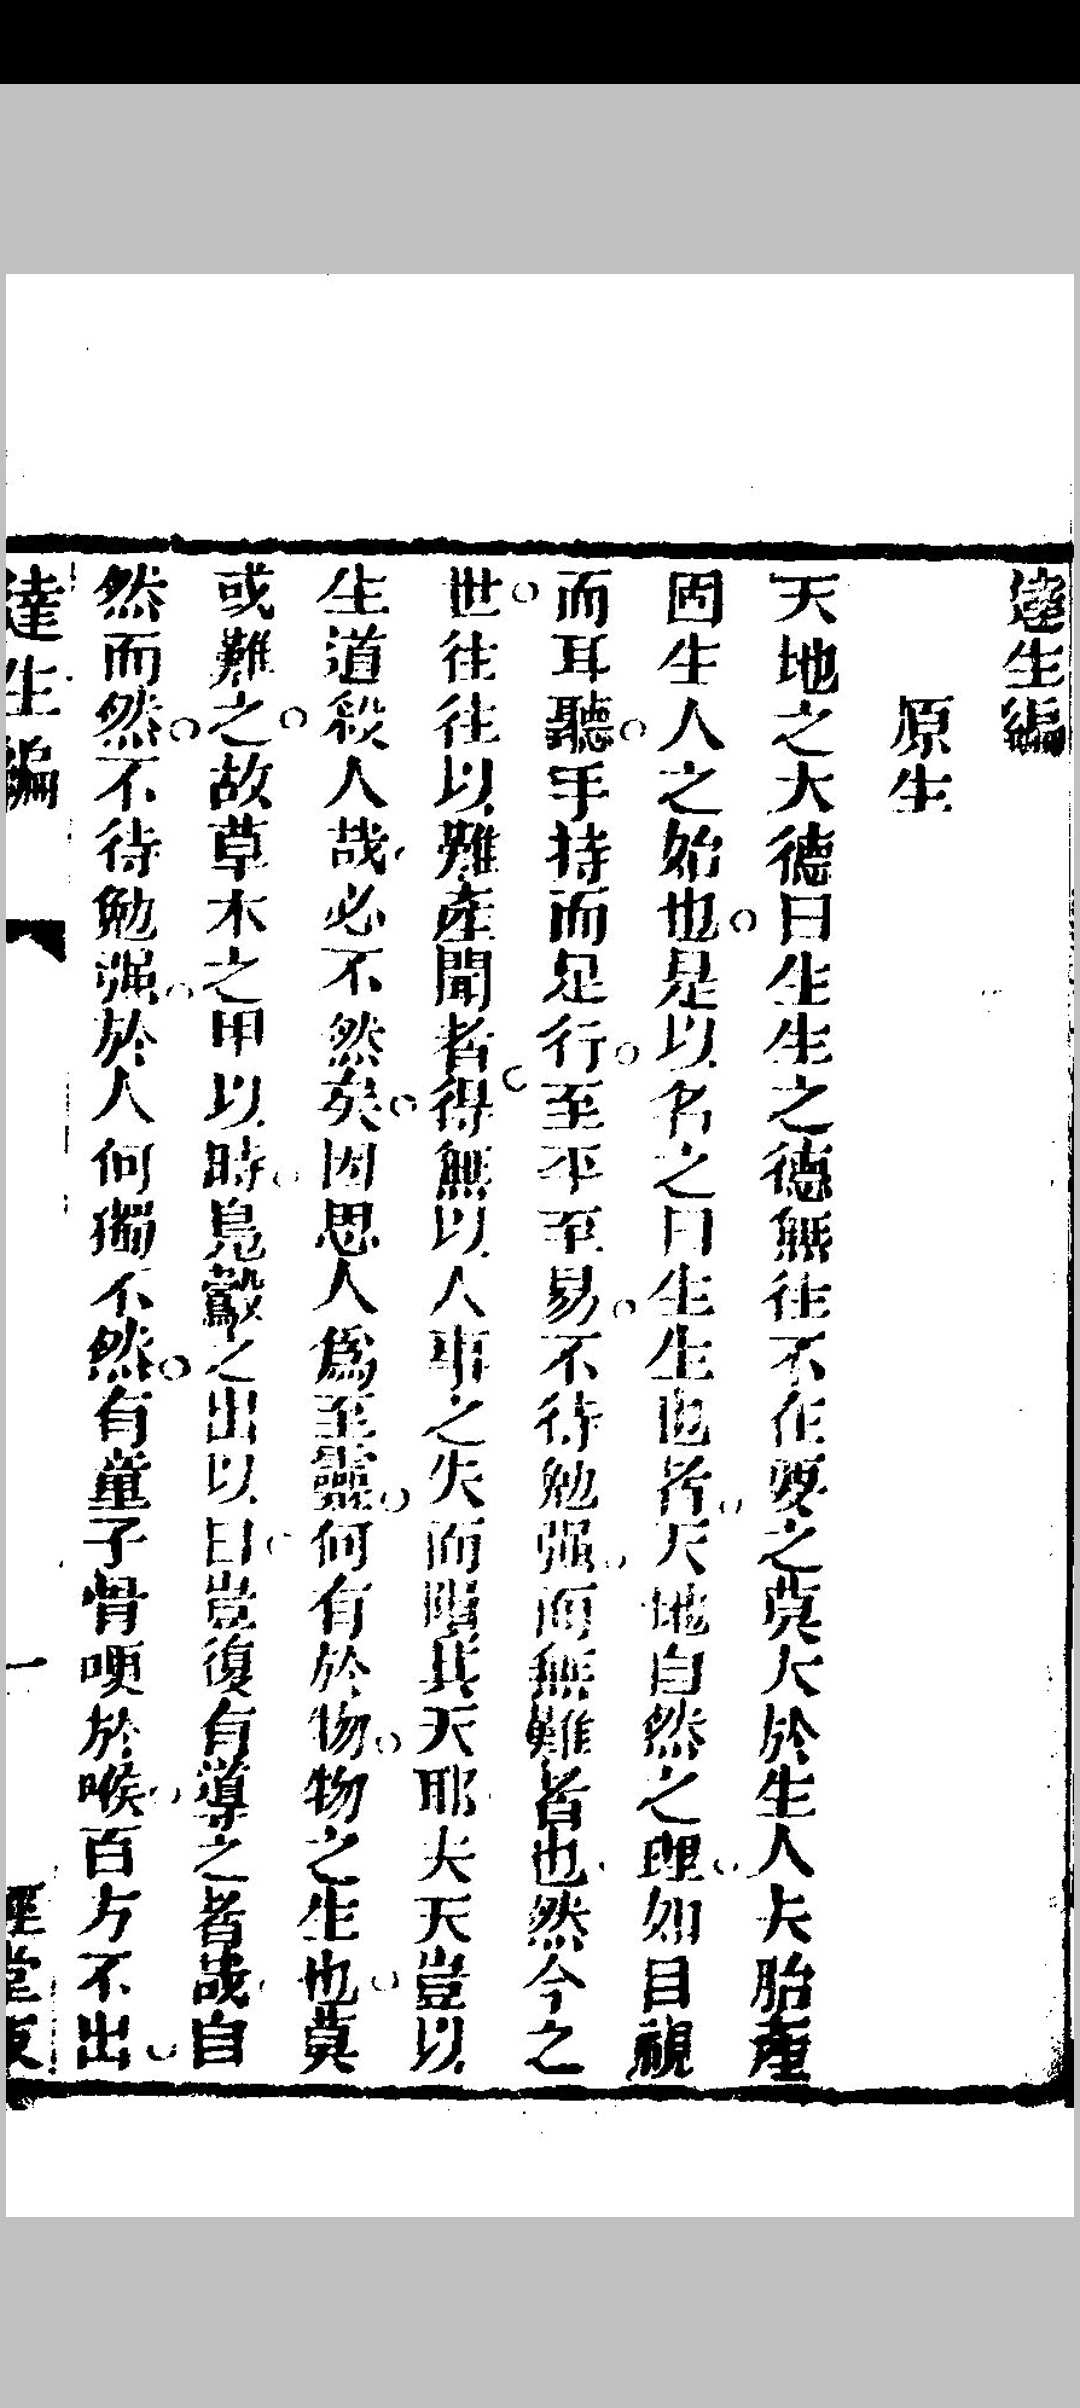 達生編
原生
天地之大德曰生生之德無往不在要之莫大於生人夫胎產
固生人之始也是以名之曰生生也者天地自然之理如目視
而耳聽手持而足行至平至易不待勉强而無難者也然今之
世往往以難產聞者得無以人事之失而隕其天耶夫天豈以
生道殺人哉必不然矣因思人爲至靈何有於物物之生也莫
或難之故草木之甲以時鳥鷇之出以日豈復有導之者哉自
然而然不待勉强於人何獨不然有童子骨哽於喉百方不出
達生編
一
堂